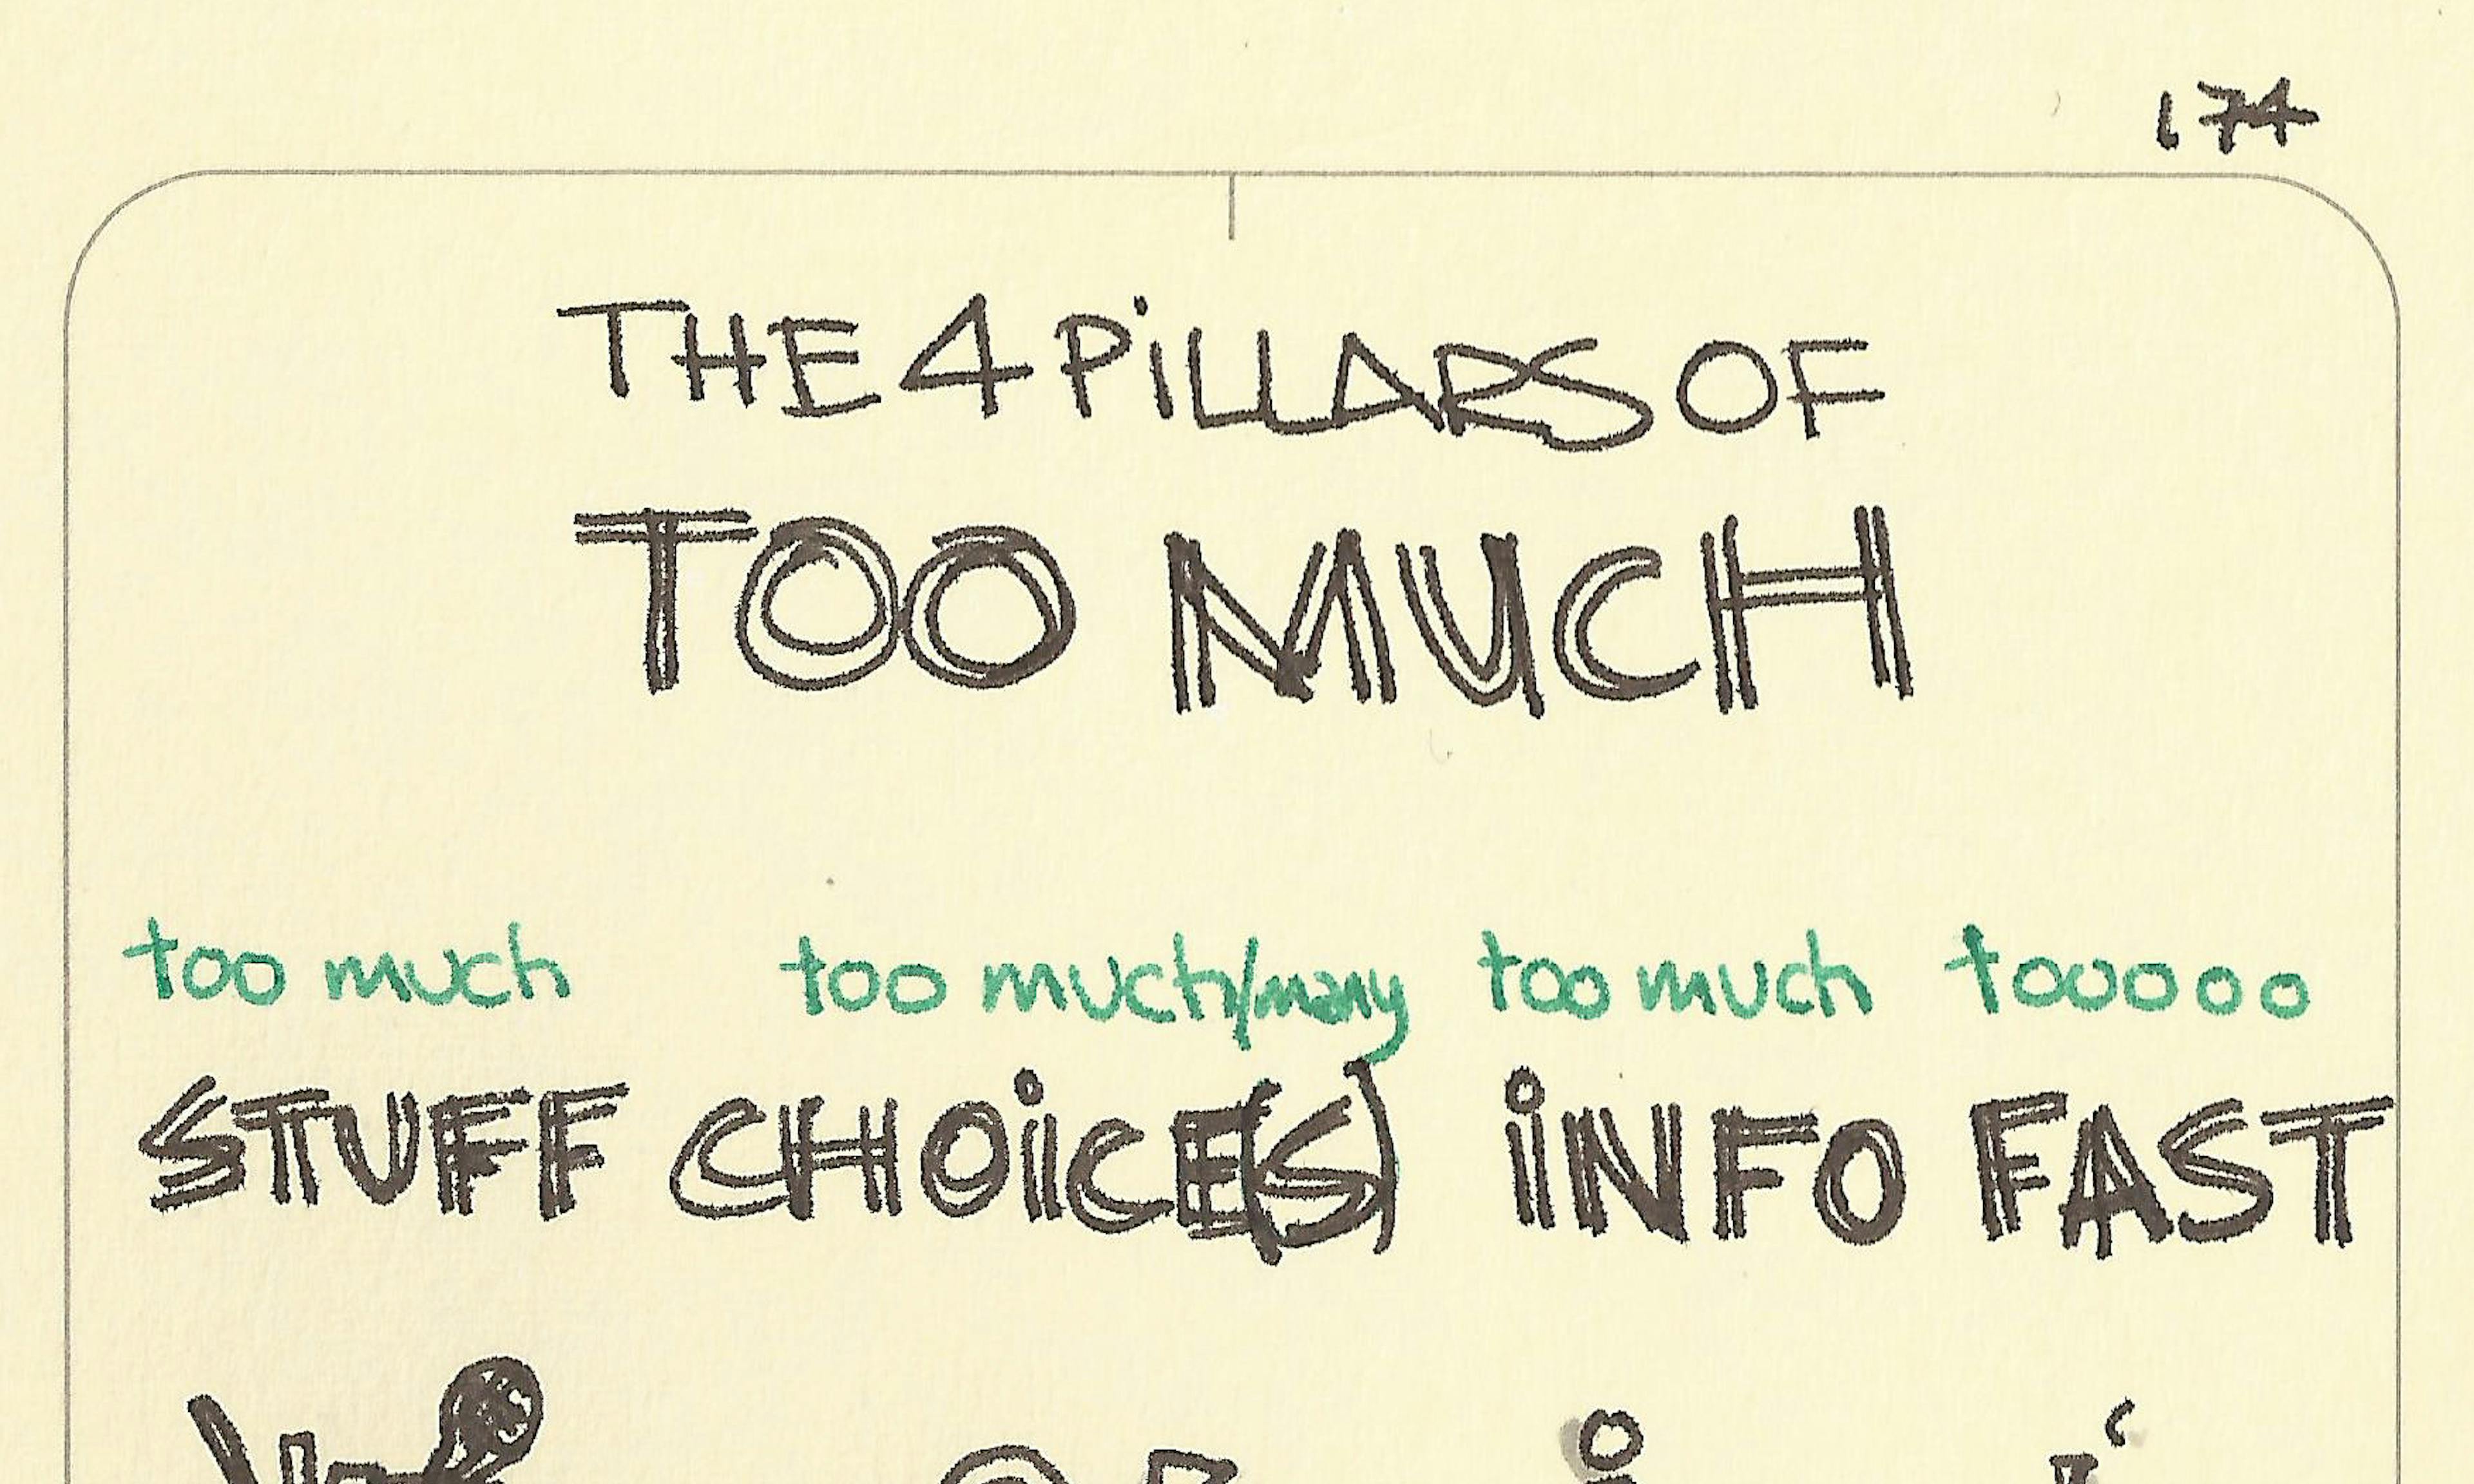 174
THE 4 PiLLARS OF
TOO MUCH
too much too much/many too much tooooo
STUFF CHOiCE(S) iNFO FAST